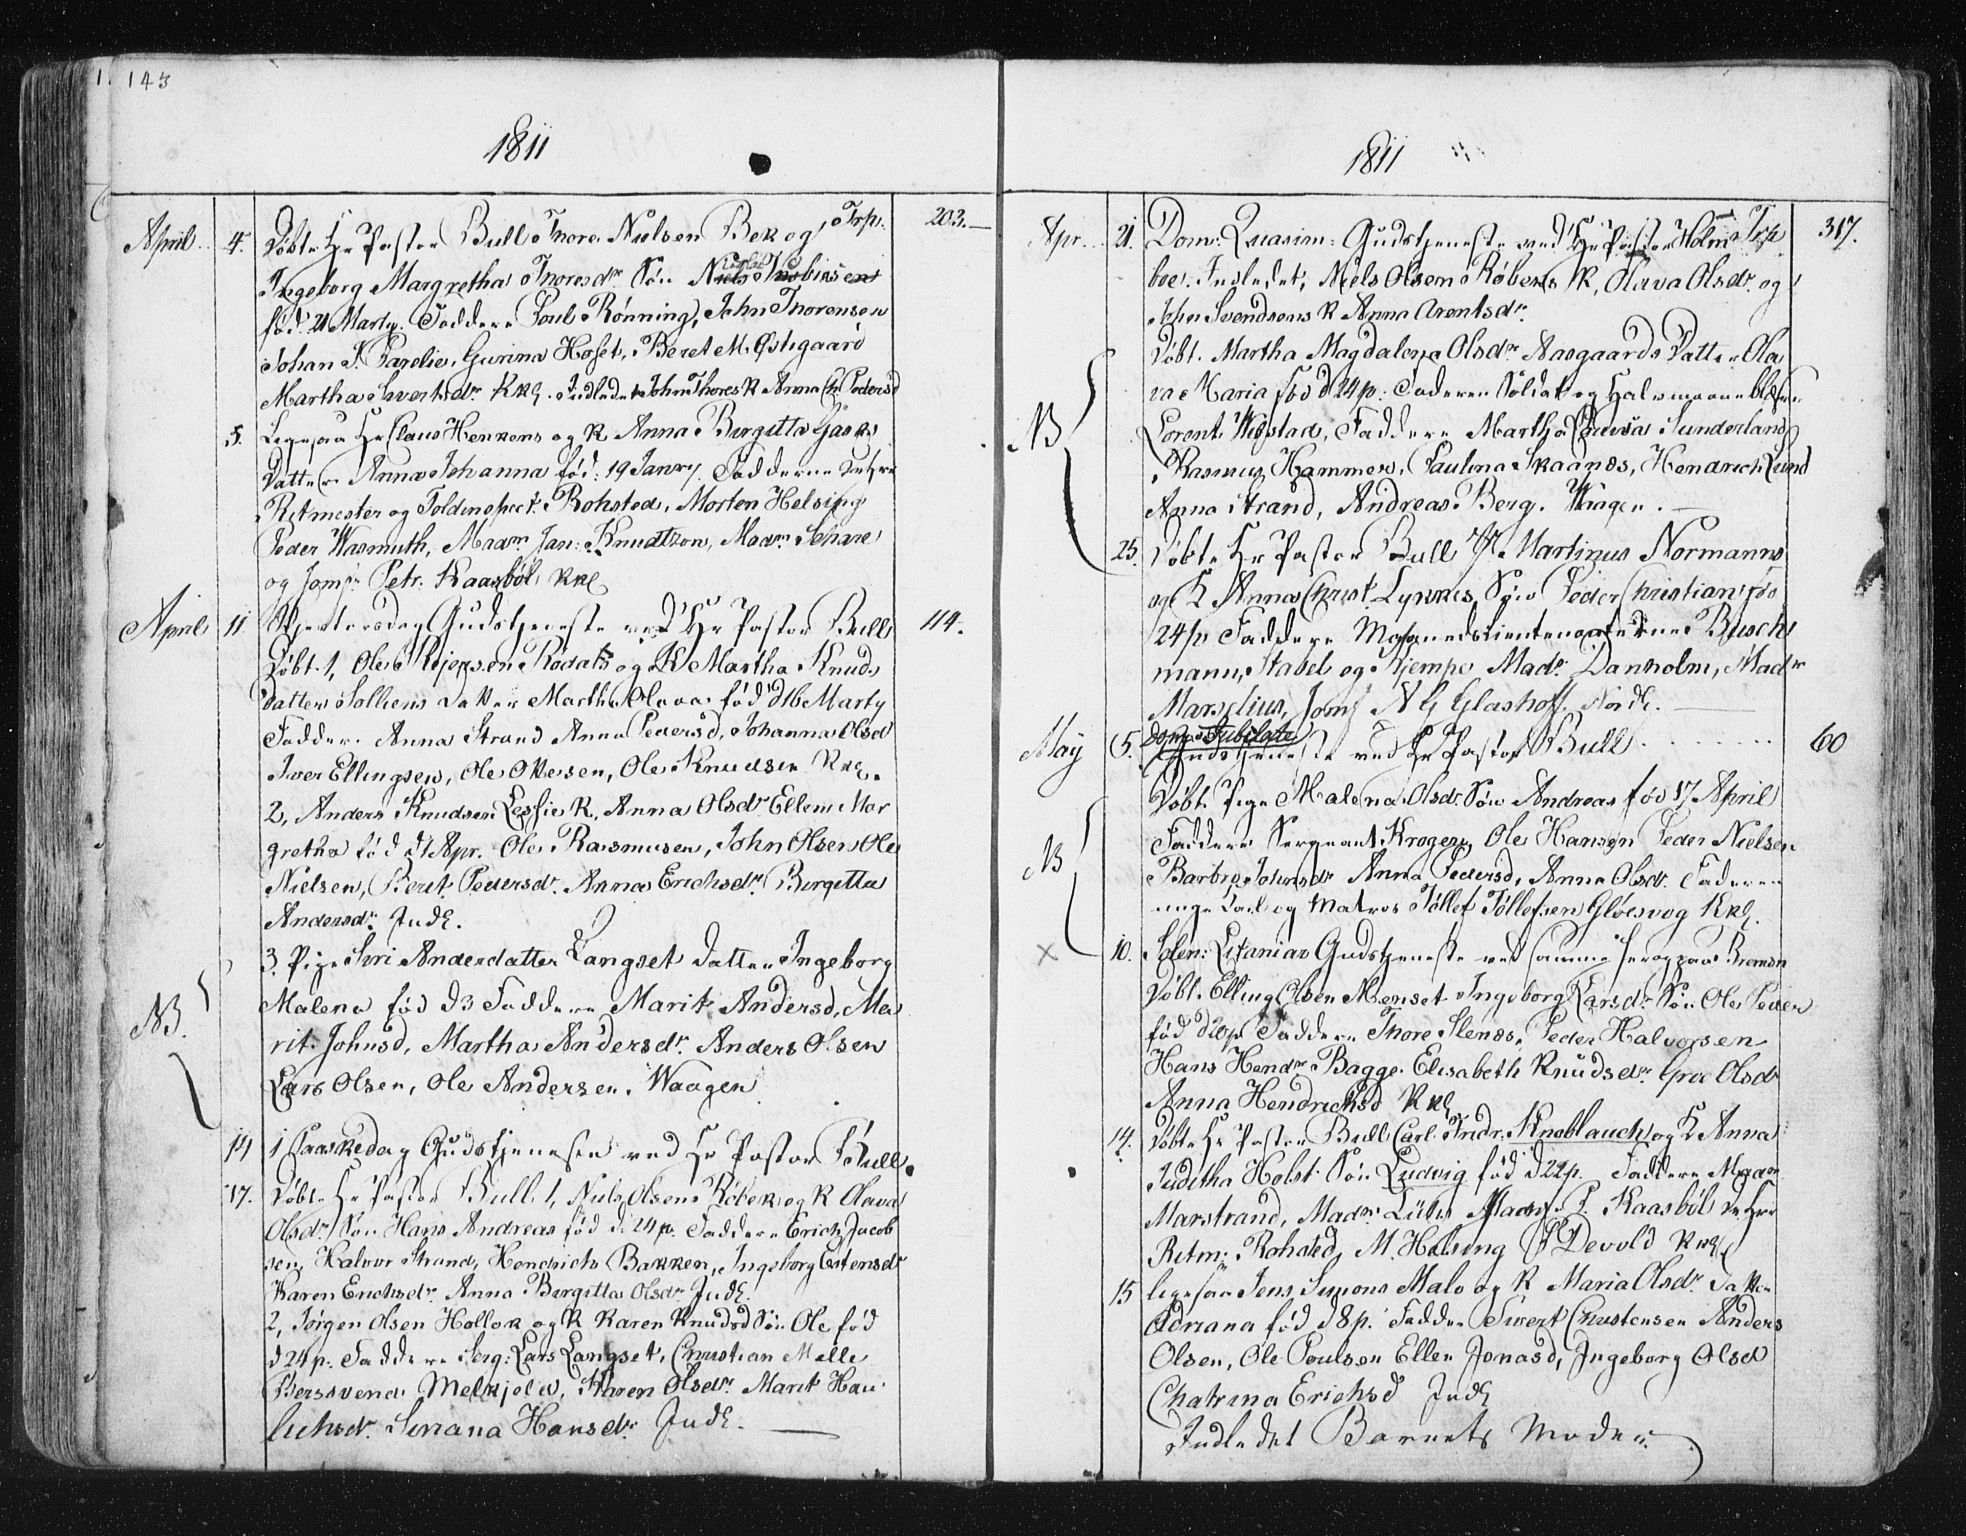 143
1811
April. 4. Døbte Hr Pastor Bull Thore Nielsen Bek og Trp. 203.
Ingeborg Margretha Thoresdr Søn Niels Thobias
fød 21 Marty. Faddere Poul Rønning, John Thorensen
Johan P. Fagelie, Gurina Hoset, Beret M. Østigaard
Martha Sivertsdr Kkl. Indledet John Thores K Anna Ch: Pedersd
5. Ligesaa Hr Claus Henkens og K Anna Birgitta
Datter Anna Johanna fød 19 Janry. Fadderne
Ritmester og Toldinspect: Rohsted, Morten Helsing
Peder Wasmuth, Madm Jan: Knudtzon, Madm Schare
og Jomfr Petr. Kaasbøl Kkl
April 11 Skjertorsdag Gudstjeneste ved Hr Pastor Bull 114.
Døbt 1, Ole Rødals og K Martha Knuds
datter Solliens Datter Martha Olava fød d16 Marty
Faddere Anna Strand Anna Pedersd, Johanna Olsd
Iver Ellingsen, Ole Olsen, Ole Knudsen Kkl.
2, Anders Knudsen K. Anna Olsdr Ellen Mar
gretha fød d1 Apr. Ole Rasmusen, John Olsen Ole
Nielsen, Beret Pedersdr Anna Erichsdr Birgitta
Andersdr Indl.
NB 3. Pige Siri Andersdatter Langset Datter Ingeborg
Malena fød d3 Faddere Marit Andersd, Ma
rit Johnsd, Martha Andersdr Anders Olsen
Lars Olsen, Ole Andersen. Waagen
14 1 Paaskedag Gudstjenesten ved Hr Pastor Bull
17. Døbte Hr Pastor Bull 1, Niels Olsen Røbek og K Olava
Olsdr Søn Hans Andreas fød d. 24 p. Faddere Erich Jacob
sen, Halvor Strand, Hendrich Bakken, Ingeborg Estensdr
Karen Erichsdr Anna Birgitta Olsdr Indl.
2, Jørgen Olsen Hollok og K Karen Knudsd Søn Ole fød
d24p. Faddere Serg: Lars Langset, Christian Melle
Berssvend Melkjeld, Karen Olsdr Marit Hen
lichsdr Seriana Hansdr Indl.
1811
Apr. 21. Dom: Quasim: Gudstjeneste ved Hr Pastor Holm Trp 317.
boe. Indledet, Niels Olsen Røbeks K, Olava Olsdr og
Svendsens K Anna Arentsdr
NB Døbt. Martha Magdalena Olsdr Aasgaards Datter Ola
va Maria fød d24p: Faderen Soldat og
Lorents Wigstad, Faddere Martha Sunderland
Rasmus Hammer, Paulina Skaanes, Hendrich Lund
Anna Strand, Andreas Berg.
25. Døbte Hr Pastor Bull Martinus Normanns
og K Anna Christ. Lynnes Søn Peder Christian fød
24p Faddere Busch
mann, Stabel og Kjempe Madm Danholm, Madm
Marselius, Jomf N G Glashoff. Indl.
May 5. Dom: Jubilate Gudstjeneste ved Hr Pastor Bull 60
NB Døbt Pige Malena Olsdr Søn Andreas fød 17 April
Faddere Sergeant Krogen, Ole Hansen Peder Nielsen
Barbro Johnsdr Anna Pedersd, Anna Olsdr Faderen
unge Karl og Matros Tøllef Tøllefsen Kkl.
X 10. Solen: Litaniar Gudstjeneste ved samme Bremsn
Døbt. Elling Olsen Menset Ingeborg Larsdr Søn Ole Peder
fød d20p Faddere Thore Slenes, Peder Halvorsen
Hans Hendr Bagge. Elisabeth Knudsdr Groe Olsdr
Anna Hendrichsd Kkl
14. Døbte Hr Pastor Bull Carl Fridr: Knoblauch og K Anna
Juditha Holst Søn Ludvig fød d22p. Faddere Madm
Marstrand, Madm Lühr Madm P. Kaasbøl
Ritm: Rohsted, M. Helsing Devold Kkl
15 ligesaa Jens Simons Malo og K Maria Olsdr Datter
Adriana fød d8p: Faddere Sivert Christensen Anders
Olsen, Ole Poulsen Ellen Jonasd, Ingeborg Olsd
Chatrina Erichsd Indl
Indledet Barnets Moder.